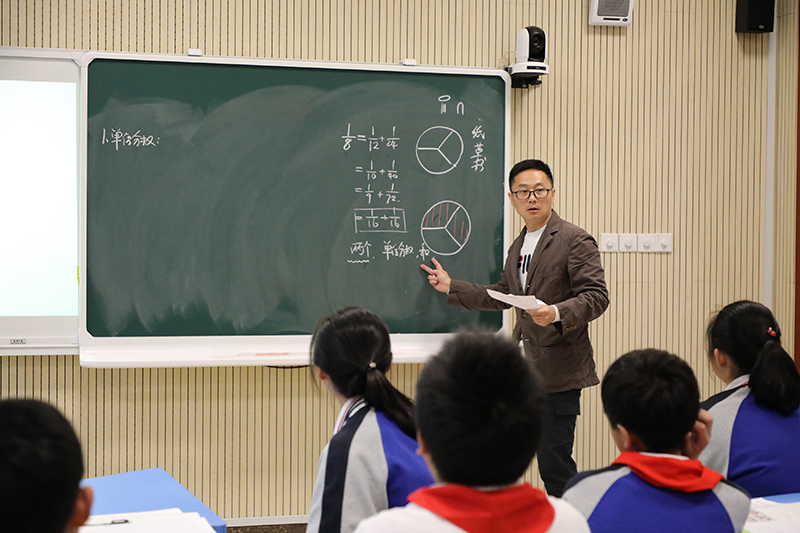 1.单位分数:
1/8 = 1/12 + 1/24
= 1/10 + 1/40
= 1/9 + 1/72
= 1/16 + 1/16
两个, 单位分数, 和
纸草书